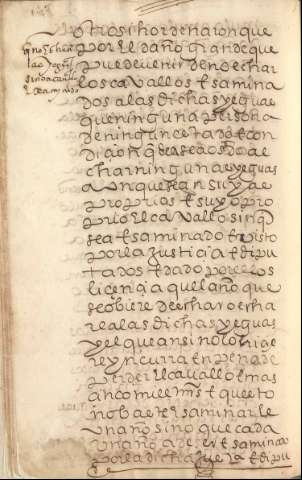 otrosi hordenaron que
por el daño grande que
puede venir de no echar
los cavallos esamina
dos a las dichas yeguas
que ninguna persona
de ningun estado e con
diçion que sea no sea osado de
echar ninguna yeguas
avnque sean suyas
proprias e suyo pro
prio el cavallo sin que
sea esaminado e visto
por la justicia e dipu
tados e dado por ellos
liçençia aquel año que
se obiere de echar o echa
re a las dichas yeguas
y el que ansi no lo hiçie
re yncurra en pena de
perder el cavallo e mas
çinco mill mrs e questo
no bae esaminarle
un año sino que cada
un año a de ser esaminado
por la dicha justicia e dipu
que no se heche
a las yeguas
sino a cavallo
esaminado